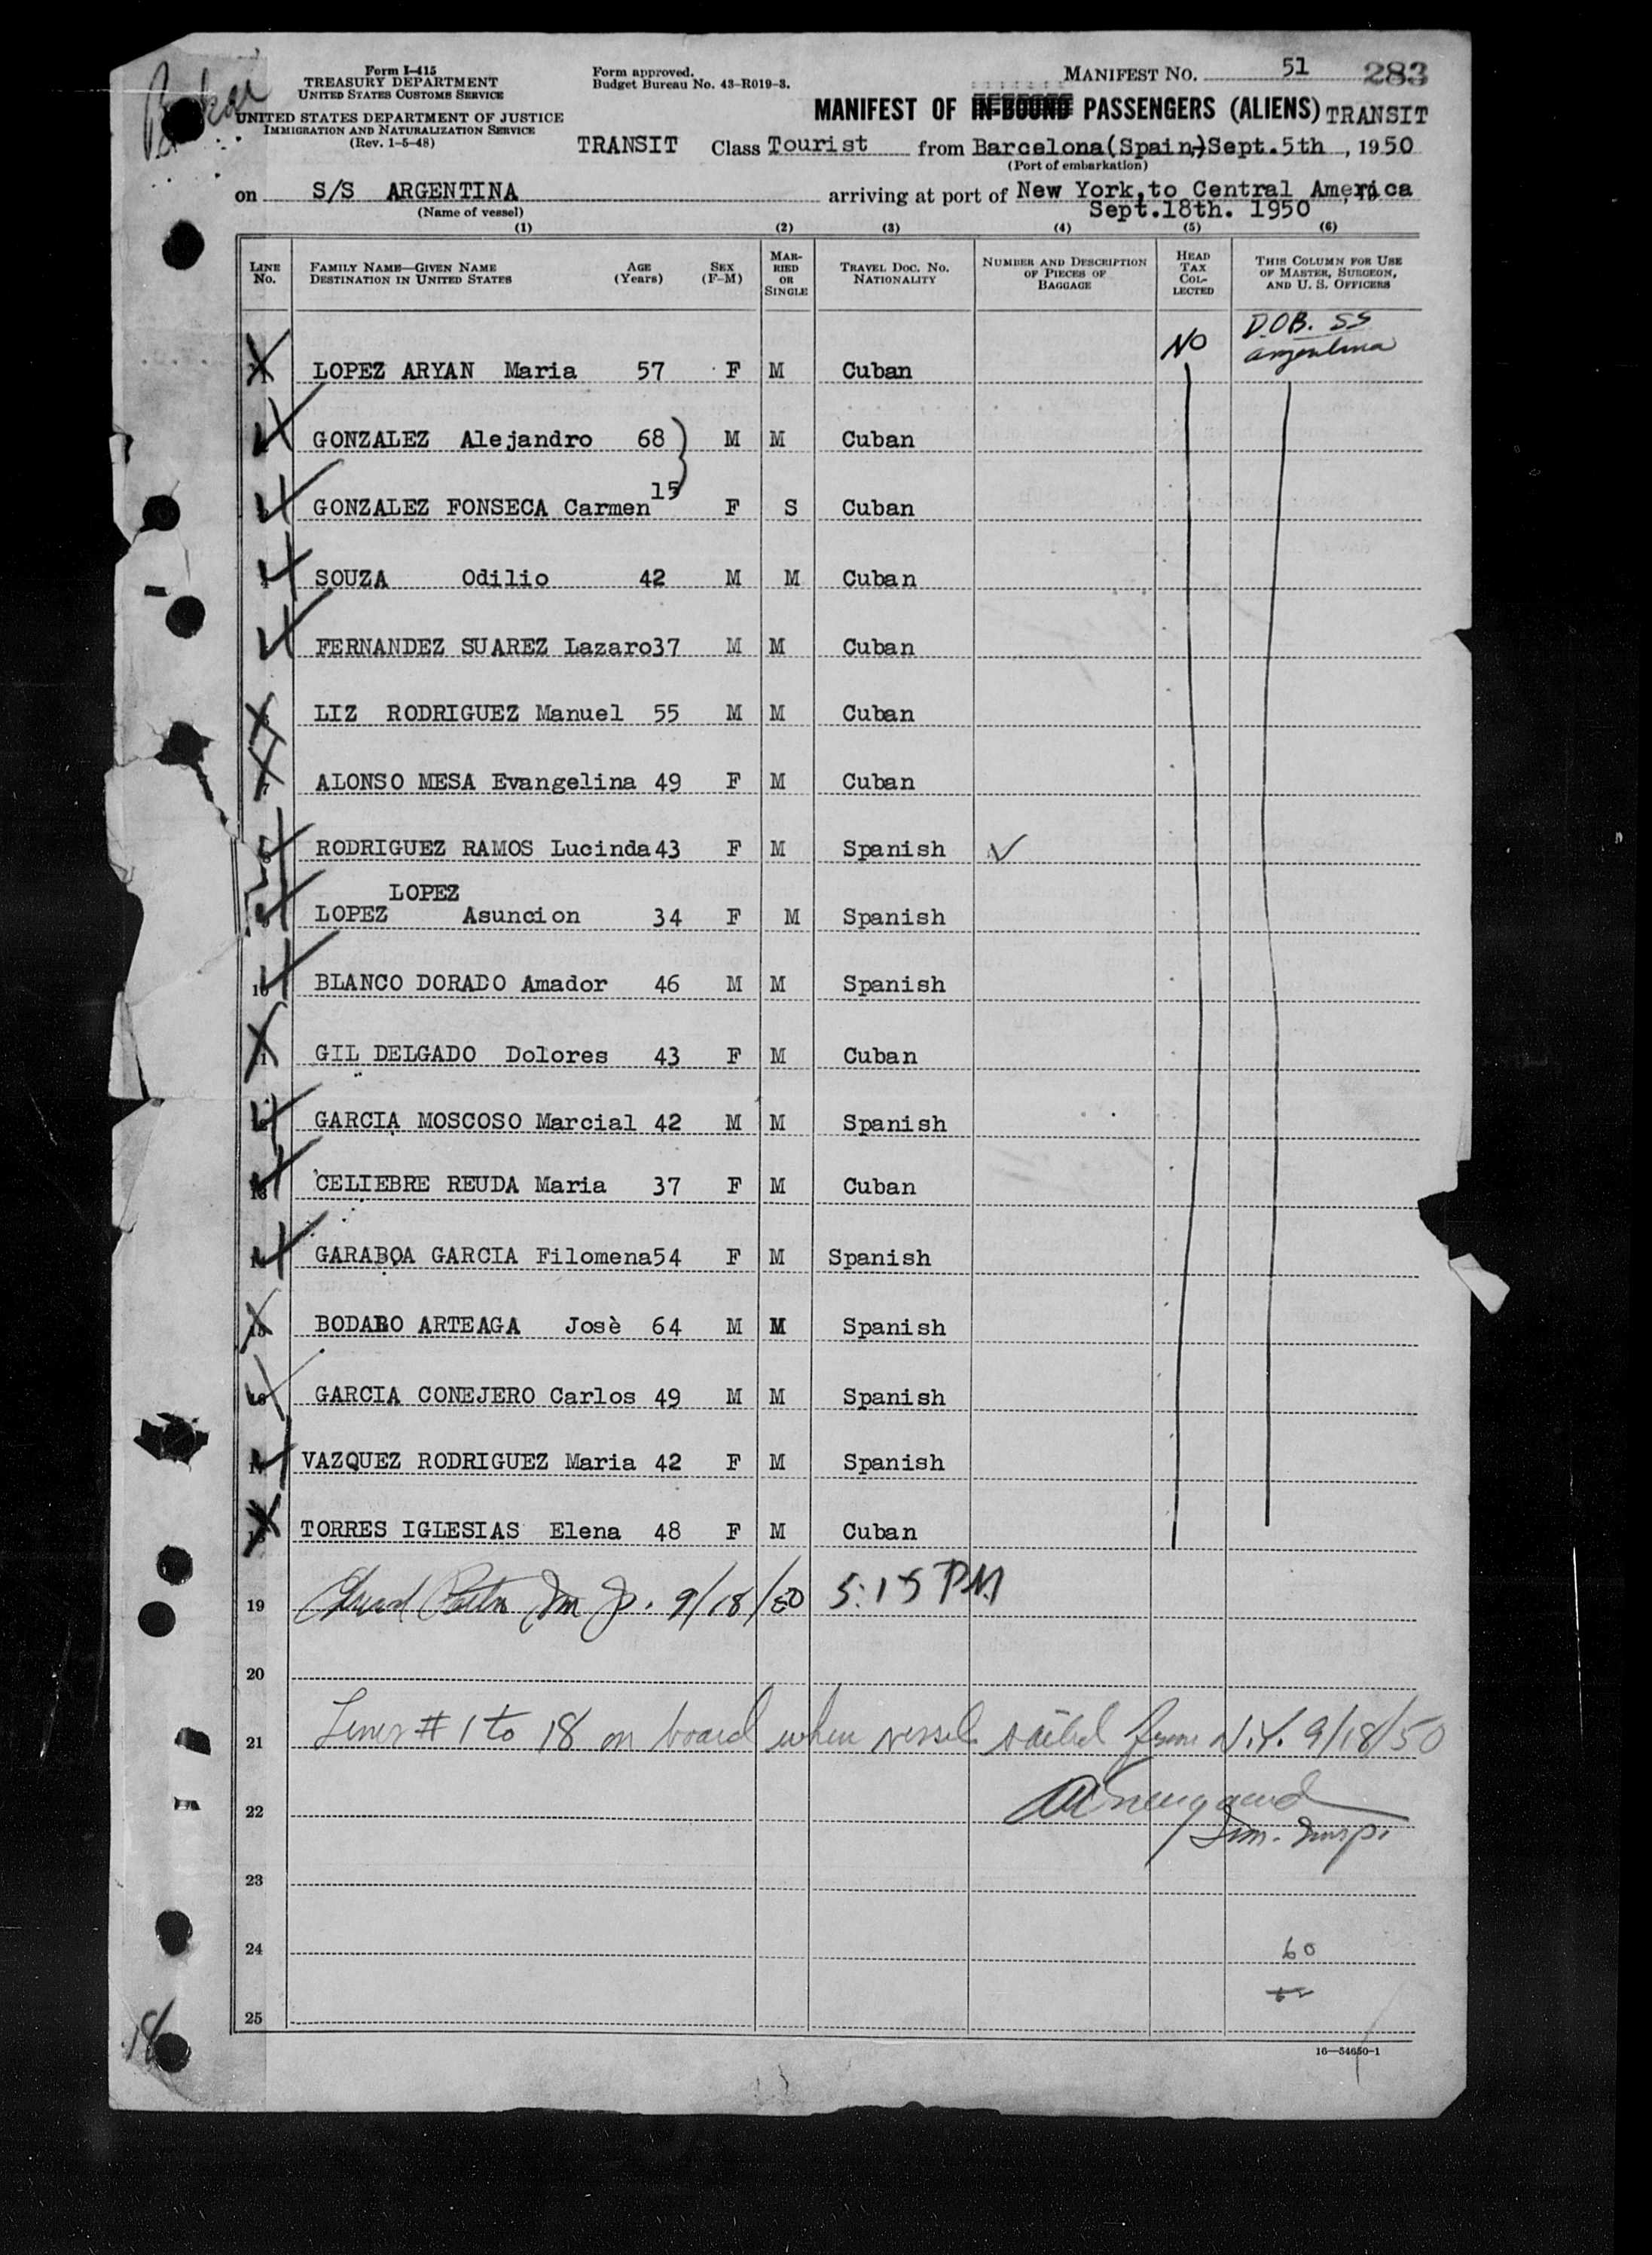 Form I-415
TREASURY DEPARTMENT
UNITED STATES CUSTOMS SERVICE
UNITED STATES DEPARTMENT OF JUSTICE
IMMIGRATION AND NATURALIZATION SERVICE
(Rev. 1-5-48)
Form approved.
Budget Bureau No. 43-R019-3.
MANIFEST NO. 51 283
MANIFEST OF IN-BOUND PASSENGERS (ALIENS) TRANSIT
TRANSIT Class Tourist from Barcelona(Spain,)Sept.5th, 1950
(Port of embarkation)
on S/S ARGENTINA arriving at port of New York,to Central America
(Name of vessel) Sept.18th. 1950
(1) (2) (3) (4) (5) (6)
LINE NO. FAMILY NAME—GIVEN NAME DESTINATION IN UNITED STATES AGE (Years) SEX (F-M) MARRIED OR SINGLE TRAVEL DOC. NO. NATIONALITY NUMBER AND DESCRIPTION OF PIECES OF BAGGAGE HEAD TAX COLLECTED THIS COLUMN FOR USE OF MASTER, SURGEON, AND U. S. OFFICERS
NO D.O.B. SS
Argentina
LOPEZ ARYAN Maria 57 F M Cuban
GONZALEZ Alejandro 68 M M Cuban
GONZALEZ FONSECA Carmen 15 F S Cuban
SOUZA Odilio 42 M M Cuban
FERNANDEZ SUAREZ Lazaro37 M M Cuban
LIZ RODRIGUEZ Manuel 55 M M Cuban
7 ALONSO MESA Evangelina 49 F M Cuban
RODRIGUEZ RAMOS Lucinda43 F M Spanish
LOPEZ
9 LOPEZ Asuncion 34 F M Spanish
10 BLANCO DORADO Amador 46 M M Spanish
11 GIL DELGADO Dolores 43 F M Cuban
12 GARCIA MOSCOSO Marcial 42 M M Spanish
13 CELIEBRE REUDA Maria 37 F M Cuban
14 GARABOA GARCIA Filomena54 F M Spanish
15 BODABO ARTEAGA Josè 64 M M Spanish
16 GARCIA CONEJERO Carlos 49 M M Spanish
17 VAZQUEZ RODRIGUEZ Maria 42 F M Spanish
18 TORRES IGLESIAS Elena 48 F M Cuban
19 9/18/50 5:15 PM
20
21 Lines # 1 to 18 on board when vessel sailed from N.Y. 9/18/50
22
Imm. Insp.
23
24 60
25
18
16—54650-1